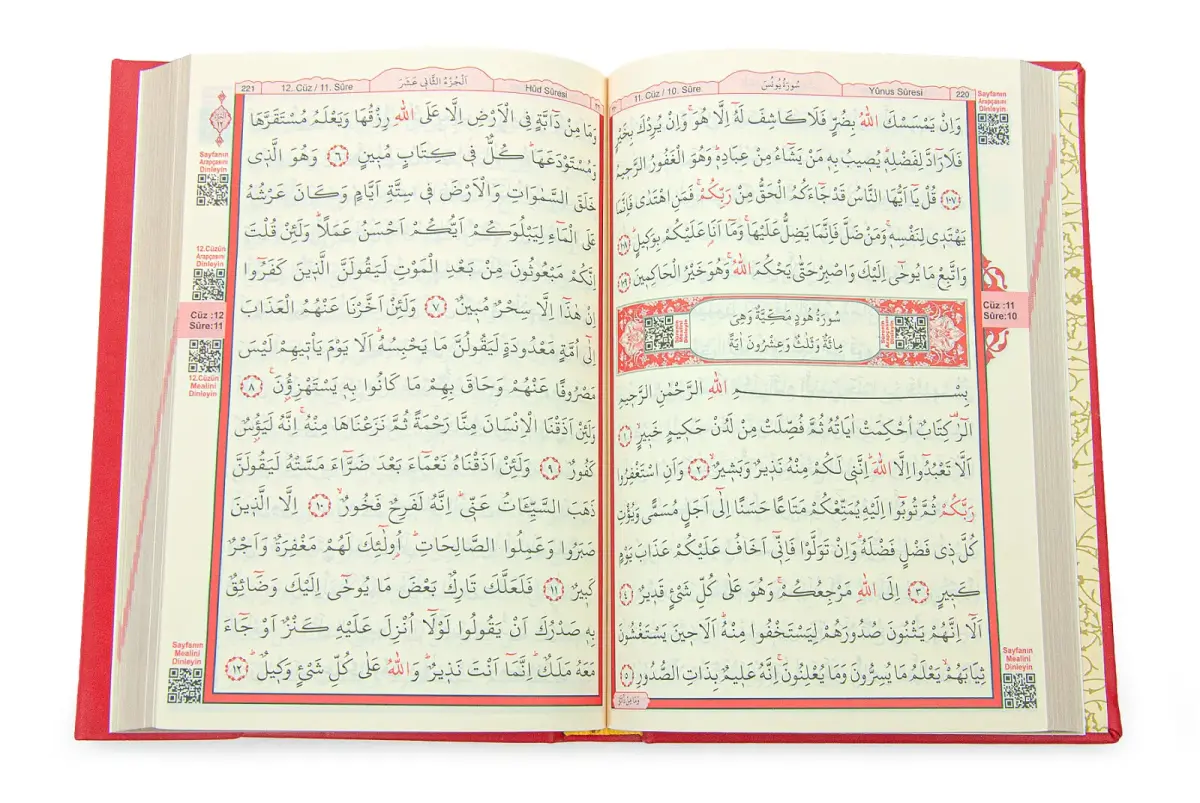 Yûnus Sûresi 220
سُورَةُ يُونُسَ
11. Cüz / 10. Sûre
Sayfanın
Arapçasını
Dinleyin
وَاِنْ يَمْسَسْكَ اللّٰهُ بِضُرٍّ فَلَا كَاشِفَ لَهُٓ اِلَّا هُوَۚ وَاِنْ يُرِدْكَ بِخَيْرٍ
فَلَا رَٓادَّ لِفَضْلِه۪ۜ يُص۪يبُ بِه۪ مَنْ يَشَٓاءُ مِنْ عِبَادِه۪ۜ وَهُوَ الْغَفُورُ الرَّح۪يمُ
﴿١٠٧﴾ قُلْ يَٓا اَيُّهَا النَّاسُ قَدْ جَٓاءَكُمُ الْحَقُّ مِنْ رَبِّكُمْۚ فَمَنِ اهْتَدٰى فَاِنَّمَا
يَهْتَد۪ي لِنَفْسِه۪ۚ وَمَنْ ضَلَّ فَاِنَّمَا يَضِلُّ عَلَيْهَاۚ وَمَٓا اَنَا۬ عَلَيْكُمْ بِوَك۪يلٍۜ ﴿١٠٨﴾
وَاتَّبِعْ مَا يُوحٰٓى اِلَيْكَ وَاصْبِرْ حَتّٰى يَحْكُمَ اللّٰهُۚ وَهُوَ خَيْرُ الْحَاكِم۪ينَ ﴿١٠٩﴾
Cüz :11
Sûre:10
سُورَةُ هُودٍ مَكِّيَّةٌ وَهِيَ
مِائَةٌ وَثَلٰثٌ وَعِشْرُونَ اٰيَةً
بِسْــــــــــمِ اللّٰهِ الرَّحْمٰنِ الرَّح۪يمِ
الٓرٰ۠ كِتَابٌ اُحْكِمَتْ اٰيَاتُهُ ثُمَّ فُصِّلَتْ مِنْ لَدُنْ حَك۪يمٍ خَب۪يرٍۙ ﴿١﴾
اَلَّا تَعْبُدُٓوا اِلَّا اللّٰهَۜ اِنَّن۪ي لَكُمْ مِنْهُ نَذ۪يرٌ وَبَش۪يرٌۙ ﴿٢﴾ وَاَنِ اسْتَغْفِرُوا
رَبَّكُمْ ثُمَّ تُوبُٓوا اِلَيْهِ يُمَتِّعْكُمْ مَتَاعًا حَسَنًا اِلٰٓى اَجَلٍ مُسَمًّى وَيُؤْتِ
كُلَّ ذ۪ي فَضْلٍ فَضْلَهُۜ وَاِنْ تَوَلَّوْا فَاِنّ۪ٓي اَخَافُ عَلَيْكُمْ عَذَابَ يَوْمٍ
كَب۪يرٍ ﴿٣﴾ اِلَى اللّٰهِ مَرْجِعُكُمْۚ وَهُوَ عَلٰى كُلِّ شَيْءٍ قَد۪يرٌ ﴿٤﴾
اَلَٓا اِنَّهُمْ يَثْنُونَ صُدُورَهُمْ لِيَسْتَخْفُوا مِنْهُۜ اَلَا ح۪ينَ يَسْتَغْشُونَ
ثِيَابَهُمْۙ يَعْلَمُ مَا يُسِرُّونَ وَمَا يُعْلِنُونَۚ اِنَّهُ عَل۪يمٌ بِذَاتِ الصُّدُورِ ﴿٥﴾
Sayfanın
Mealini
Dinleyin
وَمَا مِنْ دَٓابَّةٍ
Hûd Sûresi
اَلْجُزْءُ الثَّان۪ي عَشَرَ
12. Cüz / 11. Sûre
221
Sayfanın
Arapçasını
Dinleyin
12.Cüzün
Arapçasını
Dinleyin
Cüz :12
Sûre:11
12.Cüzün
Mealini
Dinleyin
وَمَا مِنْ دَٓابَّةٍ فِي الْاَرْضِ اِلَّا عَلَى اللّٰهِ رِزْقُهَا وَيَعْلَمُ مُسْتَقَرَّهَا
وَمُسْتَوْدَعَهَاۜ كُلٌّ ف۪ي كِتَابٍ مُب۪ينٍ ﴿٦﴾ وَهُوَ الَّذ۪ي
خَلَقَ السَّمٰوَاتِ وَالْاَرْضَ ف۪ي سِتَّةِ اَيَّامٍ وَكَانَ عَرْشُهُ
عَلَى الْمَٓاءِ لِيَبْلُوَكُمْ اَيُّكُمْ اَحْسَنُ عَمَلًاۜ وَلَئِنْ قُلْتَ
اِنَّكُمْ مَبْعُوثُونَ مِنْ بَعْدِ الْمَوْتِ لَيَقُولَنَّ الَّذ۪ينَ كَفَرُٓوا
اِنْ هٰذَٓا اِلَّا سِحْرٌ مُب۪ينٌ ﴿٧﴾ وَلَئِنْ اَخَّرْنَا عَنْهُمُ الْعَذَابَ
اِلٰٓى اُمَّةٍ مَعْدُودَةٍ لَيَقُولُنَّ مَا يَحْبِسُهُۜ اَلَا يَوْمَ يَأْت۪يهِمْ لَيْسَ
مَصْرُوفًا عَنْهُمْ وَحَاقَ بِهِمْ مَا كَانُوا بِه۪ يَسْتَهْزِؤُ۫نَ۟ ﴿٨﴾
وَلَئِنْ اَذَقْنَا الْاِنْسَانَ مِنَّا رَحْمَةً ثُمَّ نَزَعْنَاهَا مِنْهُۚ اِنَّهُ لَيَؤُ۫سٌ
كَفُورٌ ﴿٩﴾ وَلَئِنْ اَذَقْنَاهُ نَعْمَٓاءَ بَعْدَ ضَرَّٓاءَ مَسَّتْهُ لَيَقُولَنَّ
ذَهَبَ السَّيِّـَٔاتُ عَنّ۪يۜ اِنَّهُ لَفَرِحٌ فَخُورٌۙ ﴿١٠﴾ اِلَّا الَّذ۪ينَ
صَبَرُوا وَعَمِلُوا الصَّالِحَاتِۜ اُو۬لٰٓئِكَ لَهُمْ مَغْفِرَةٌ وَاَجْرٌ
كَب۪يرٌ ﴿١١﴾ فَلَعَلَّكَ تَارِكٌ بَعْضَ مَا يُوحٰٓى اِلَيْكَ وَضَٓائِقٌ
بِه۪ صَدْرُكَ اَنْ يَقُولُوا لَوْلَٓا اُنْزِلَ عَلَيْهِ كَنْزٌ اَوْ جَٓاءَ
مَعَهُ مَلَكٌۜ اِنَّمَٓا اَنْتَ نَذ۪يرٌۜ وَاللّٰهُ عَلٰى كُلِّ شَيْءٍ وَك۪يلٌۜ ﴿١٢﴾
Sayfanın
Mealini
Dinleyin